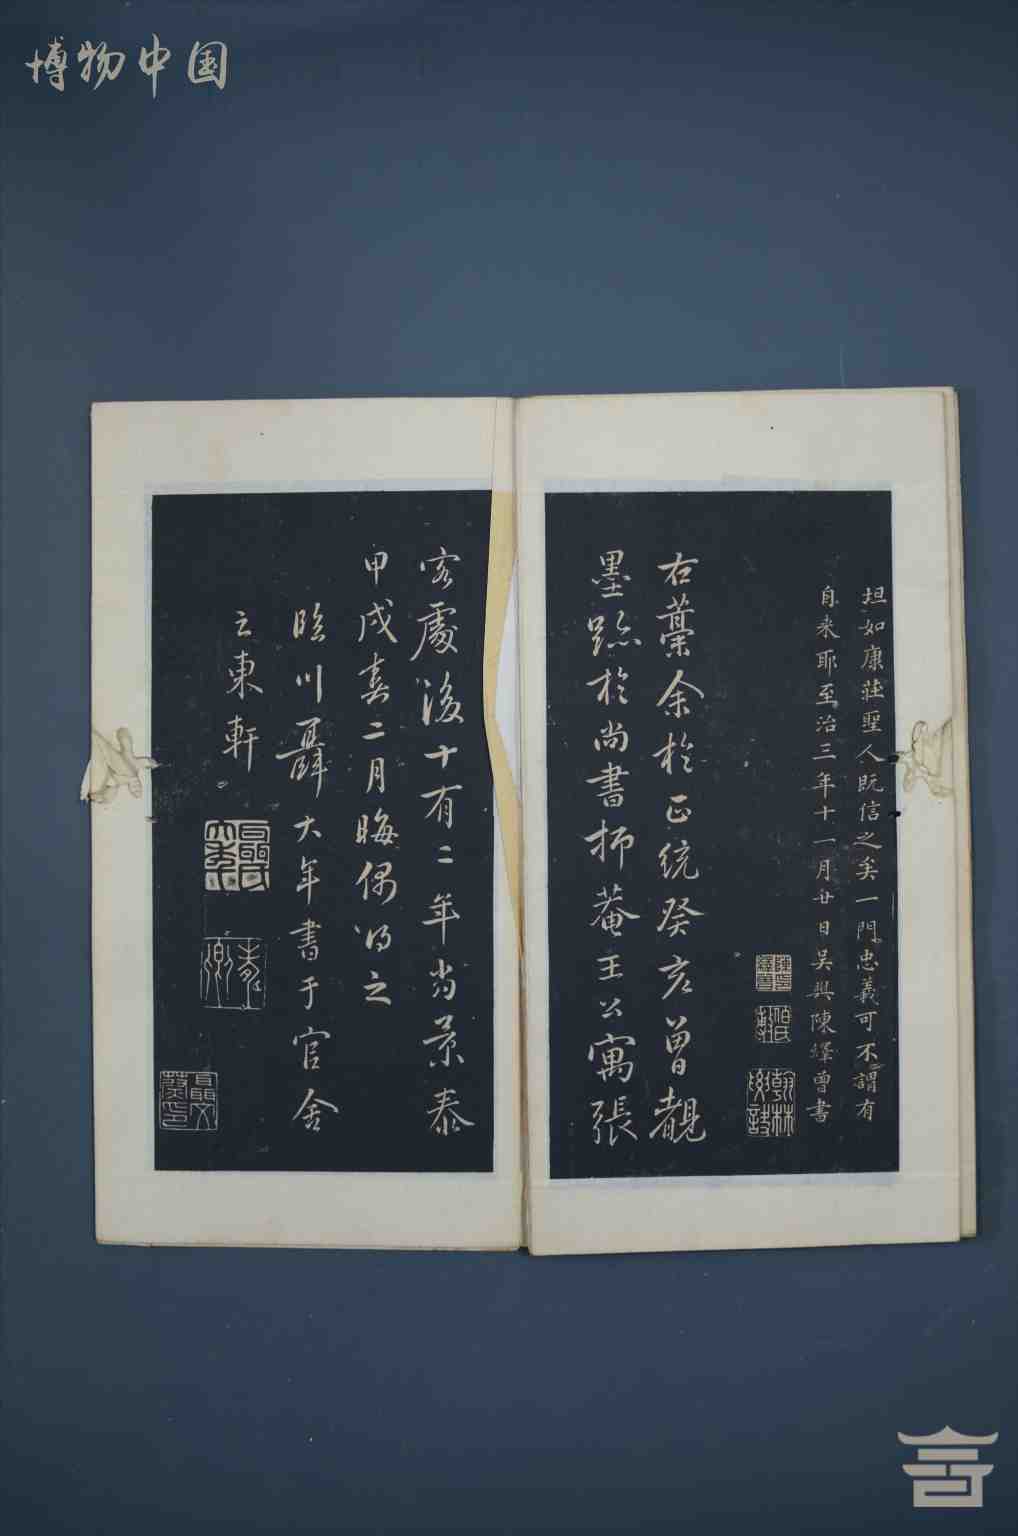 博物中国
坦如康莊聖人既信之矣一門忠義可不謂有
自来耶至治三年十一月廿日吴興陳繹曾書
右藁余於正統癸亥曾觀
墨跡於尚書抑菴王公寓張
客處後十有二年當景泰
甲戌春二月晦偶得之
臨川聶大年書于官舍
之東軒
陳氏繹曾
伯敷
聶氏大年
壽卿